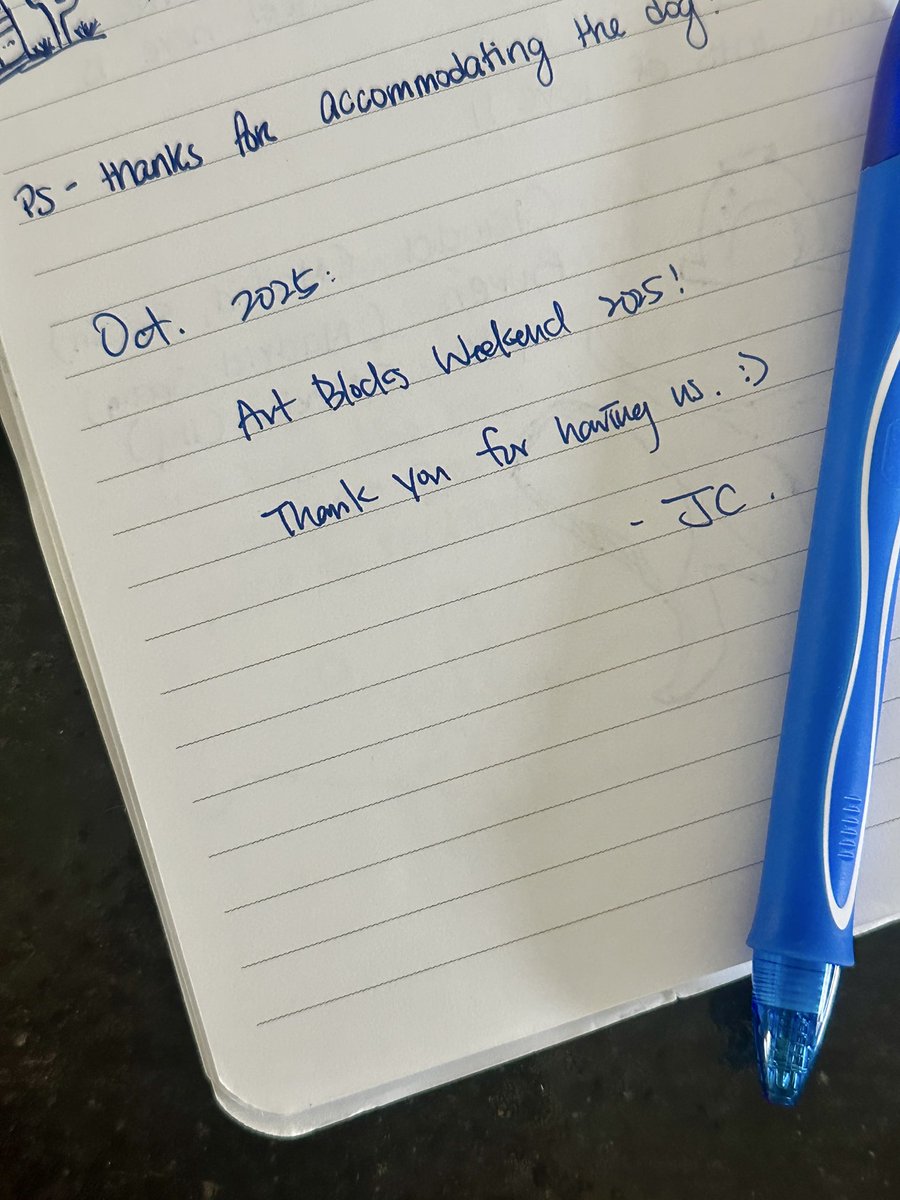 PS - thanks for accommodating the dog!
Oct. 2025:
Art Blocks Weekend 2025!
Thank you for having us. :)
- JC.